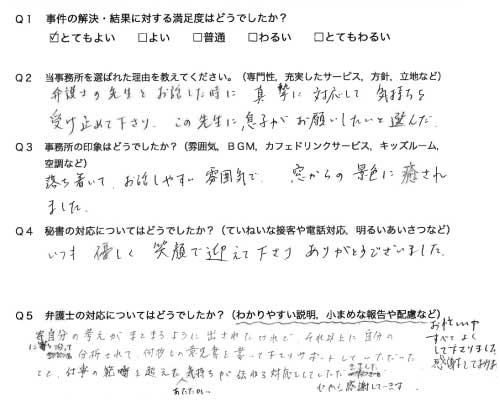 Q1 事件の解決・結果に対する満足度はどうでしたか？
☑とてもよい □よい □普通 □わるい □とてもわるい
Q2 当事務所を選ばれた理由を教えてください。（専門性，充実したサービス，方針，立地など）
弁護士の先生とお話した時に 真摯に対応して 気持ちを
受け止めて下さり、この先生に息子がお願いしたいと選んだ.
Q3 事務所の印象はどうでしたか？（雰囲気，ＢＧＭ，カフェドリンクサービス，キッズルーム，
空調など）
落ち着いて、お話しやすい雰囲気で、窓からの景色に癒され
ました.
Q4 秘書の対応についてはどうでしたか？（ていねいな接客や電話対応，明るいあいさつなど）
いつも 優しく 笑顔で迎えて下さり ありがとうございました.
Q5 弁護士の対応についてはどうでしたか？（わかりやすい説明，小まめな報告や配慮など）
自分の考えがまとまるように出されたけれど、それ以上に自分の
分析されて、何枚もの意見書を書って下さりサポートしていただいた
こと、仕事の範疇を超えた気持ちが伝わる対応でした
あたたかい
心から感謝してます.
お忙しい中
すべてよく
して下さりました
感謝しております